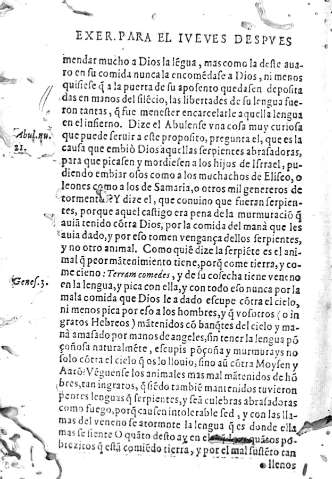 EXER. PARA EL IVEVES DESPVES
mendar mucho a Dios la lẽgua, mas como la deste aua-
ro en su comida nunca la encomẽdase a Dios, ni menos
quisiese q̃ a la puerta de su aposento quedasen deposita
das en manos del silẽcio, las libertades de su lengua fue-
ron tantas, q̃ fue menester encarcelarle aquella lengua
en el infierno. Dize el Abulense vna cosa muy curiosa
Abul. nu.
21.
que puede seruir a este proposito, pregunta el, que es la
causa que embiò Dios aquellas serpientes abrasadoras,
para que picasen y mordiesen a los hijos de Israel, pu-
diendo embiar osos como a los muchachos de Eliseo, o
leones como a los de Samaria, o otros mil genereros de
tormenta? Y dize el, que conuino que fueran serpien-
tes, porque aquel castigo era pena de la murmuraciõ q̃
auiã tenido cõtra Dios, por la comida del manà que les
auia dado, y por eso tomen vengança dellos serpientes,
y no otro animal. Como quiẽ dize la serpiẽte es el ani-
mal q̃ peor mãtenimiento tiene, porq̃ come tierra, y co-
Genes. 3.
me cieno: Terram comedes, y de su cosecha tiene veneno
en la lengua, y pica con ella, y con todo eso nunca por la
mala comida que Dios le a dado escupe cõtra el cielo,
ni menos pica por eso a los hombres, y q̃ vosotros (o in
gratos Hebreos) mãtenidos cõ banq̃tes del cielo y ma-
nà amasado por manos de angeles, sin tener la lengua põ
çoñosa naturalmẽte, escupis põçoña y murmurays no
solo cõtra el cielo q̃ os lo llouio, sino aũ cõtra Moysen y
Aarõ? Vẽguense los animales mas mal mãtenidos de hõ
bres, tan ingratos, q̃ siẽdo tambiẽ mantenidos tuvieron
pentes lenguas q̃ serpientes, y sea culebras abrasadoras
como fuego, porq̃ causen intolerable sed, y con las lla-
mas del veneno se atormente la lengua q̃ es donde ella
mas se siente O quãto desto ay en el quãtos po-
brezitos q̃ está comiẽdo tierra, y por el mal sustẽto tan
llenos